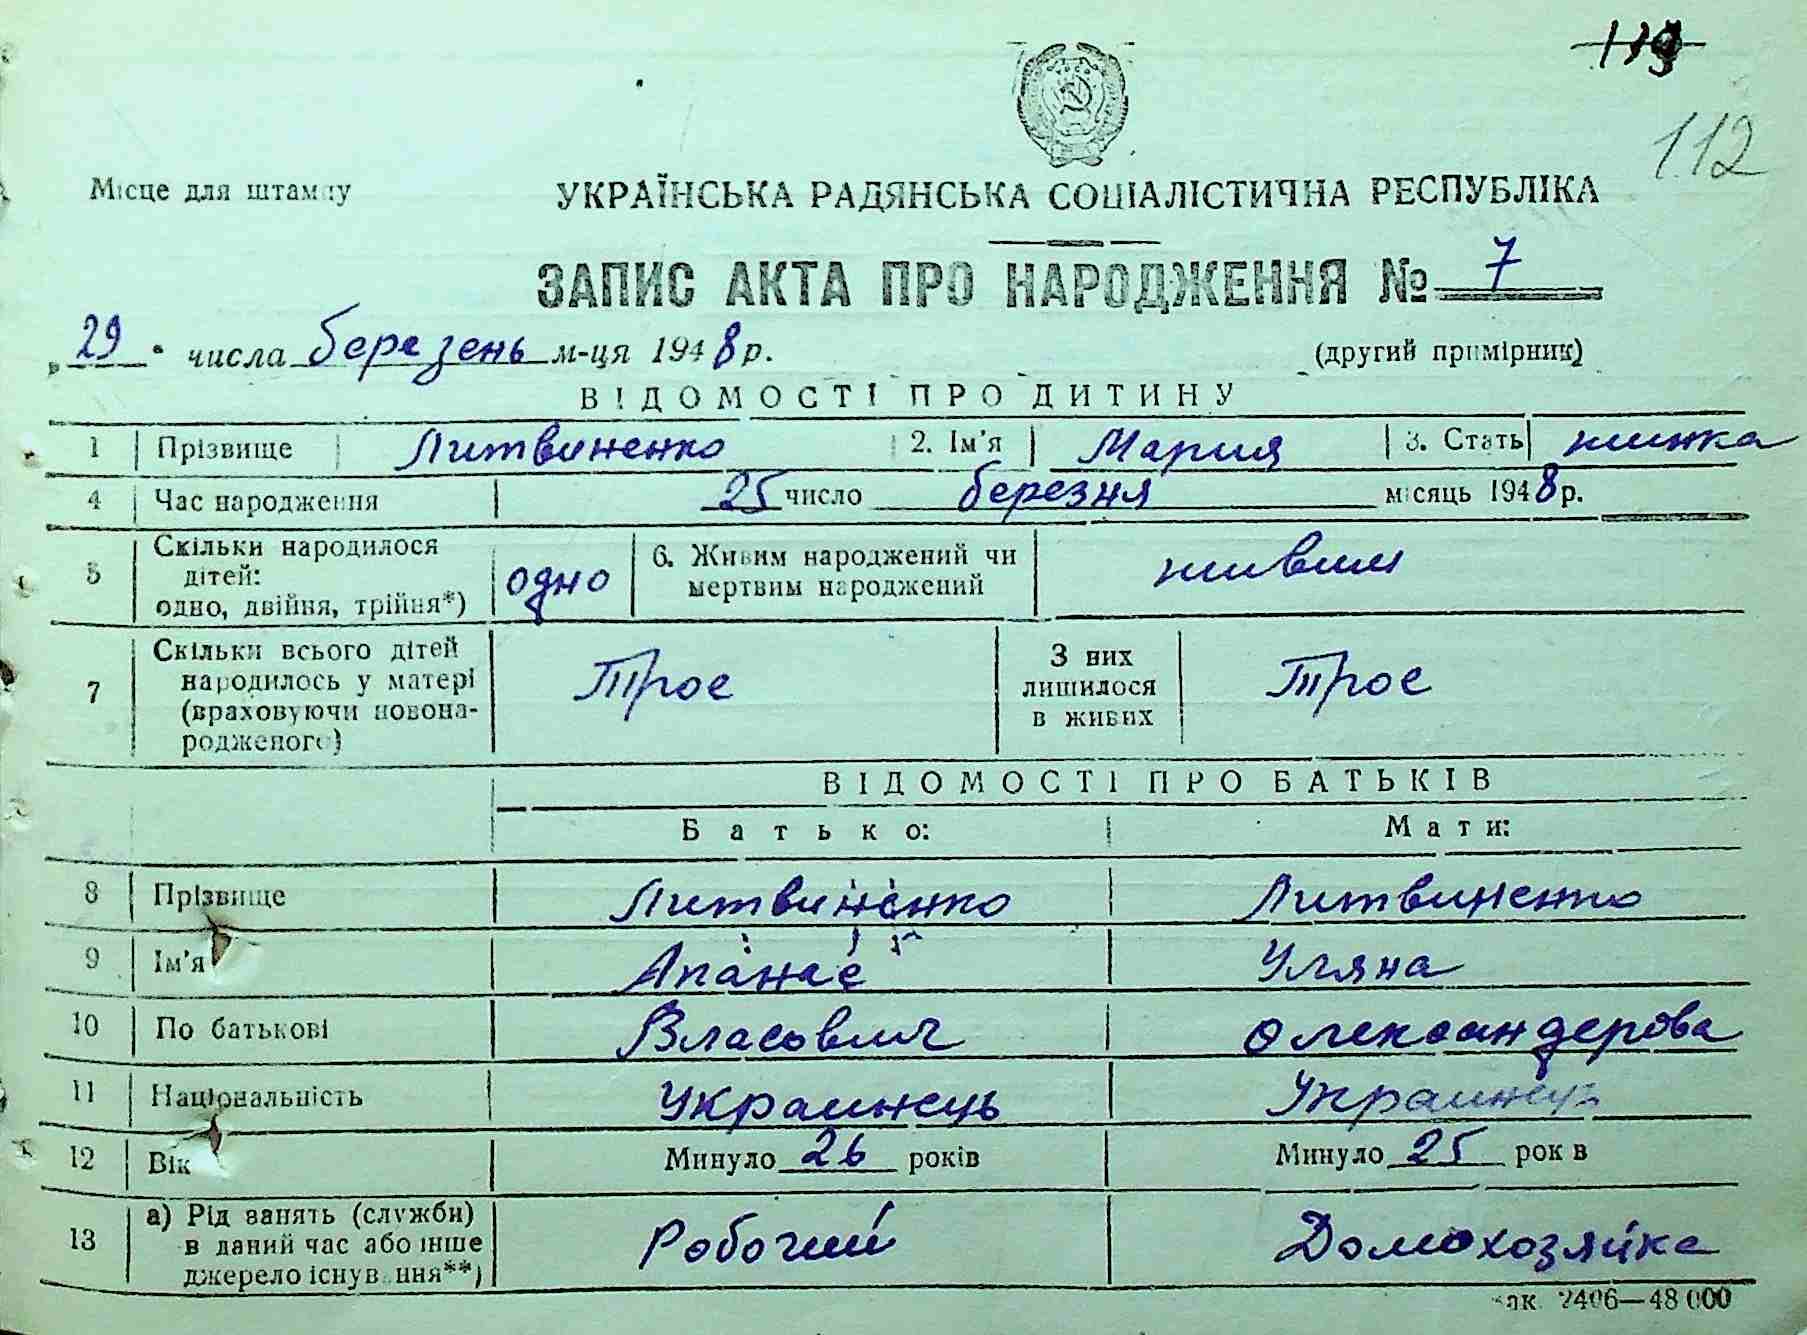 119
112
Місце для штампу
УКРАЇНСЬКА РАДЯНСЬКА СОЦІАЛІСТИЧНА РЕСПУБЛІКА
ЗАПИС АКТА ПРО НАРОДЖЕННЯ № 7
„29" числа березень м-ця 1948 р.
(другий примірник)
ВІДОМОСТІ ПРО ДИТИНУ
1 Прізвище Литвиненко 2. Ім'я Мария 3. Стать жинка
4 Час народження 25 число березня місяць 1948 р.
5 Скільки народилося дітей: одно, двійня, трійня*) одно 6. Живим народжений чи мертвим народжений живим
7 Скільки всього дітей народилось у матері (враховуючи новонародженого) Трое З них лишилося в живих Трое
ВІДОМОСТІ ПРО БАТЬКІВ
Батько: Мати:
8 Прізвище Литвиненко Литвиненко
9 Ім'я Апанас Уляна
10 По батькові Власович Олександерова
11 Національність Украинець Украинець
12 Вік Минуло 26 років Минуло 25 рок в
13 а) Рід занять (служби) в даний час або інше джерело існування**) Робочий Домохозяйка
Зак. 2406—48 000